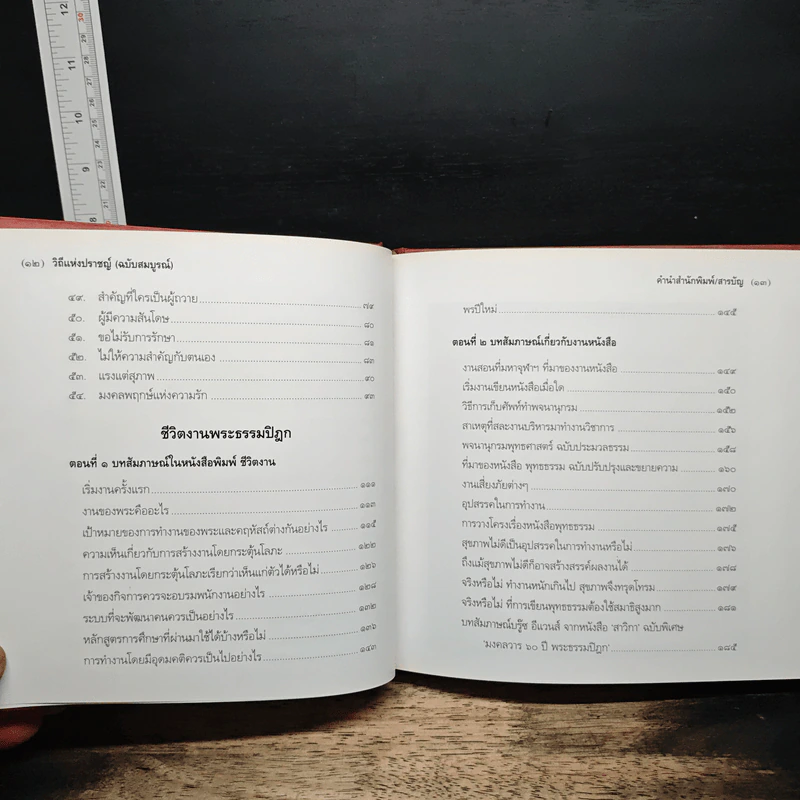 12
30
29
28
11
27
26
10
25
24
9
23
22
8
21
(๑๒) วิถีแห่งปราชญ์ (ฉบับสมบูรณ์)
๔๙. สำคัญที่ใครเป็นผู้ถวาย ๗๙
๕๐. ผู้มีความสันโดษ ๘๐
๕๑. ขอไม่รับการรักษา ๘๑
๕๒. ไม่ให้ความสำคัญกับตนเอง ๘๓
๕๓. แรงแต่สุภาพ ๙๐
๕๔. มงคลพฤกษ์แห่งความรัก ๙๓
ชีวิตงานพระธรรมปิฎก
ตอนที่ ๑ บทสัมภาษณ์ในหนังสือพิมพ์ ชีวิตงาน
เริ่มงานครั้งแรก ๑๑๑
งานของพระคืออะไร ๑๑๓
เป้าหมายของการทำงานของพระและคฤหัสถ์ต่างกันอย่างไร ๑๑๕
ความเห็นเกี่ยวกับการสร้างงานโดยกระตุ้นโลภะ ๑๒๒
การสร้างงานโดยกระตุ้นโลภะเรียกว่าเห็นแก่ตัวได้หรือไม่ ๑๒๖
เจ้าของกิจการควรจะอบรมพนักงานอย่างไร ๑๒๘
ระบบที่จะพัฒนาคนควรเป็นอย่างไร ๑๓๒
หลักสูตรการศึกษาที่ผ่านมาใช้ได้บ้างหรือไม่ ๑๓๖
การทำงานโดยมีอุดมคติควรเป็นไปอย่างไร ๑๔๓
คำนำสำนักพิมพ์/สารบัญ (๑๓)
พรปีใหม่ ๑๔๕
ตอนที่ ๒ บทสัมภาษณ์เกี่ยวกับงานหนังสือ
งานสอนที่มหาจุฬาฯ ที่มาของงานหนังสือ ๑๔๙
เริ่มงานเขียนหนังสือเมื่อใด ๑๕๐
วิธีการเก็บศัพท์ทำพจนานุกรม ๑๕๒
สาเหตุที่สละงานบริหารมาทำงานวิชาการ ๑๕๖
พจนานุกรมพุทธศาสตร์ ฉบับประมวลธรรม ๑๕๘
ที่มาของหนังสือ พุทธธรรม ฉบับปรับปรุงและขยายความ ๑๖๐
งานเสี่ยงภัยต่างๆ ๑๗๐
อุปสรรคในการทำงาน ๑๗๒
การวางโครงเรื่องหนังสือพุทธธรรม ๑๗๕
สุขภาพไม่ดีเป็นอุปสรรคในการทำงานหรือไม่ ๑๗๖
ถึงแม้สุขภาพไม่ดีก็อาจสร้างสรรค์ผลงานได้ ๑๗๘
จริงหรือไม่ ทำงานหนักเกินไป สุขภาพจึงทรุดโทรม ๑๗๙
จริงหรือไม่ ที่การเขียนพุทธธรรมต้องใช้สมาธิสูงมาก ๑๘๑
บทสัมภาษณ์บรู๊ซ อีแวนส์ จากหนังสือ 'สาวิกา' ฉบับพิเศษ
'มงคลวาร ๖๐ ปี พระธรรมปิฎก' ๑๘๕